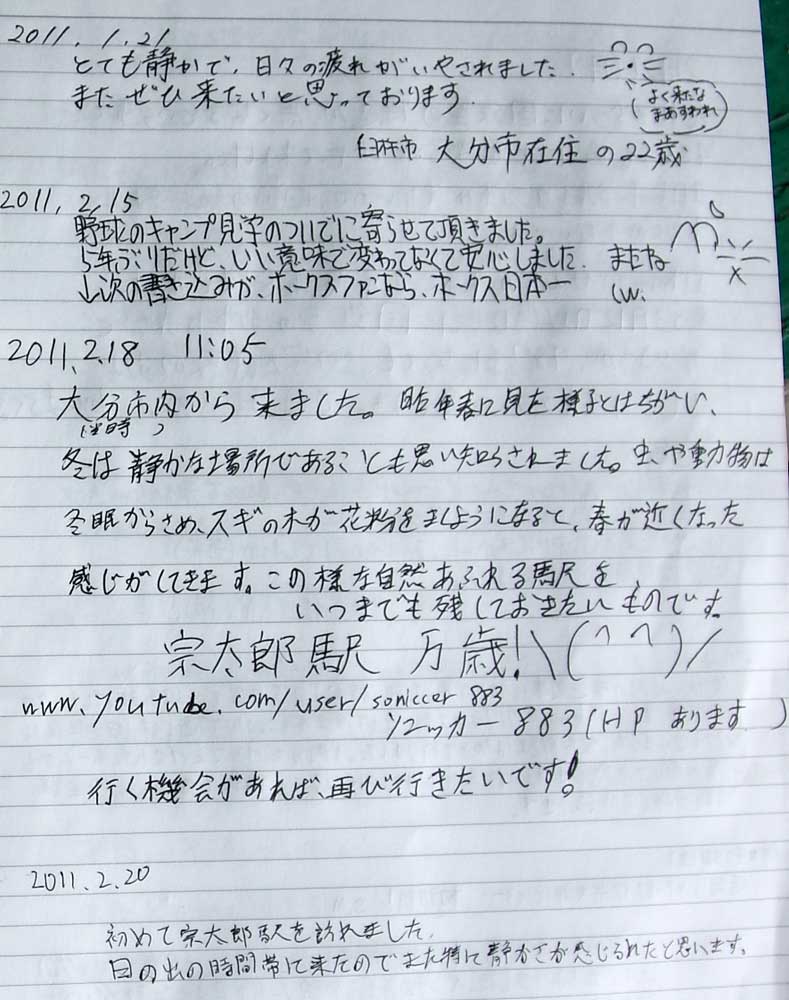 2011. 1. 21
とても静かで、日々の疲れがいやされました.
また ぜひ 来たいと思っております.
よく来たな
まあすわれ
臼杵市 大分市在住 の22歳
2011. 2. 15
野球のキャンプ見学のついでに寄らせて頂きました。
5年ぶりだけど、いい意味で変わってなくて安心しました. またね
の書き込みが、ホークスファンなら、ホークス日本一
(w.
2011. 2. 18 11:05
大分市内から 来ました。昨年春に見た様子とはちがい、
(当時 )
冬は静かな場所であることも思い知らされました。虫や動物は
冬眠からさめ、スギの木が花粉をまくようになると、春が近くなった
感じがしてきます。この様な自然あふれる駅を、
いつまでも残しておきたいものです。
宗太郎駅 万歳!\(^ ^)/
www.youtube.com/user/soniccer883
ソニッカー883(HP あります )
行く機会があれば、再び行きたいです!
2011. 2. 20
初めて宗太郎駅を訪れました.
日の出の時間帯に来たのでまた特に静かさが感じられたと思います。